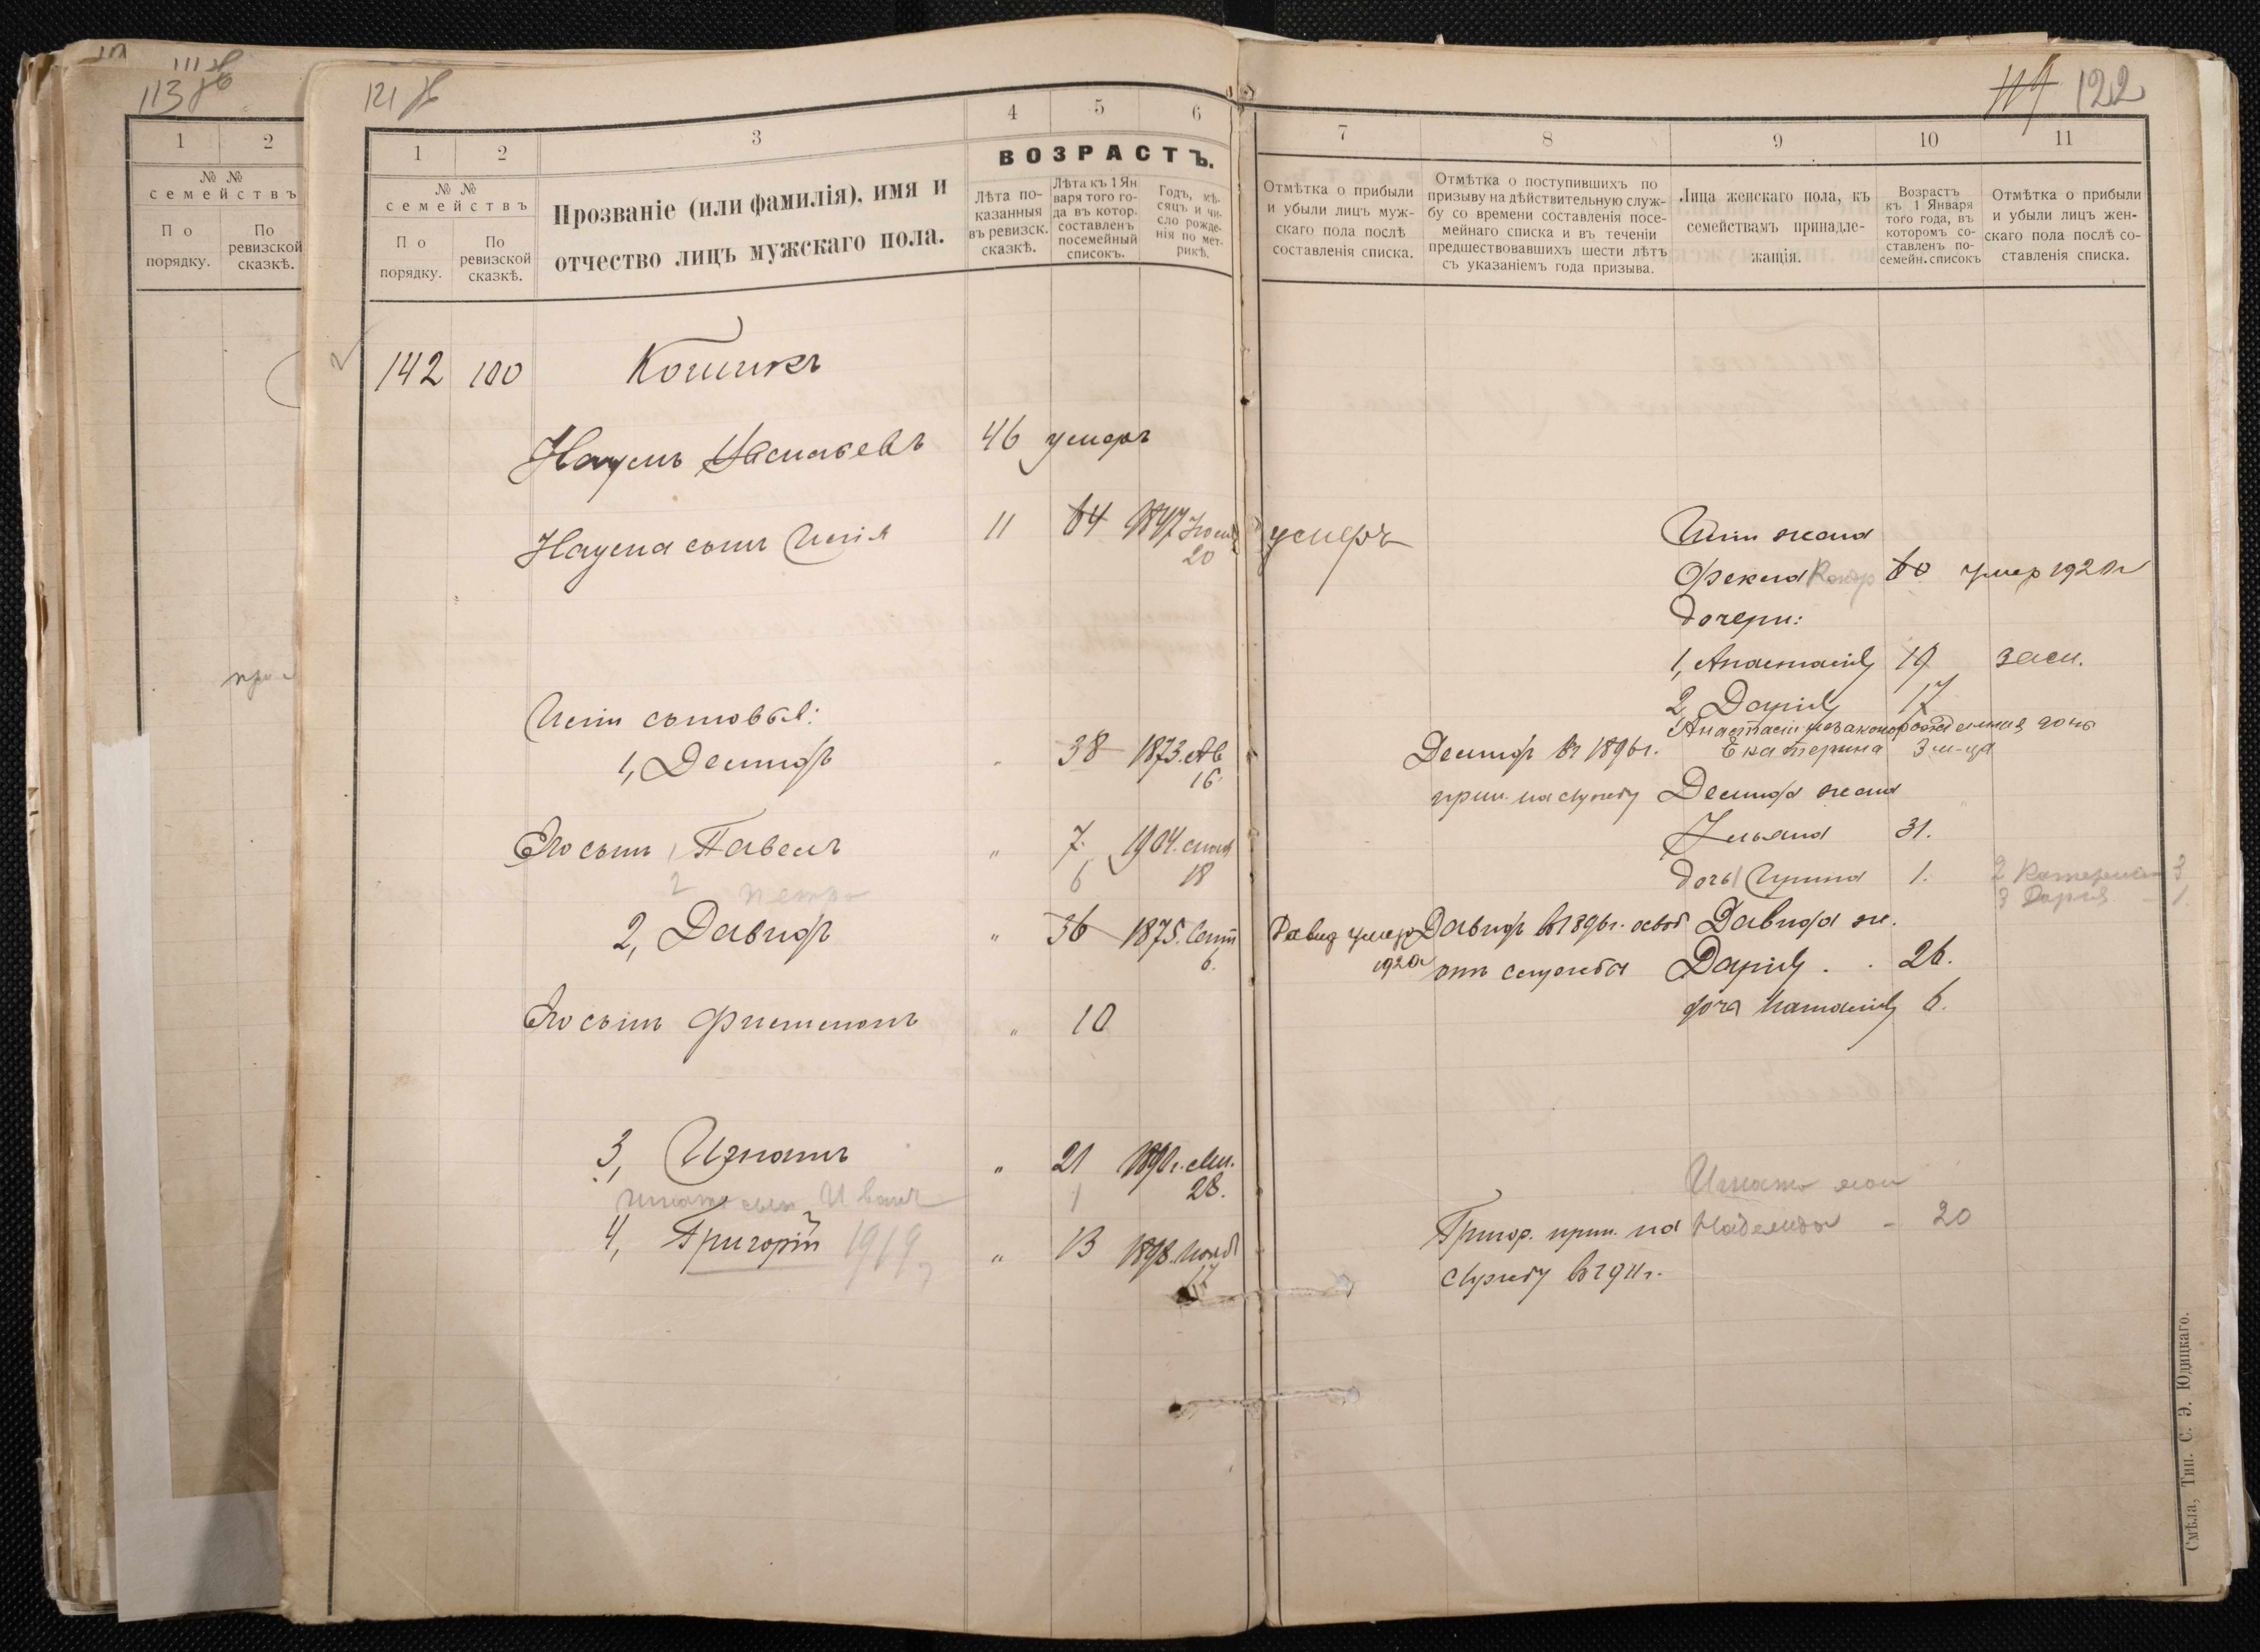 113 об
1 2
№ №
семействъ
По порядку.
По ревизской сказкѣ.
121 об
1 2 3 4 5 6
№ №
семействъ
По порядку.
По ревизской сказкѣ.
Прозваніе (или фамилія), имя и
отчество лицъ мужскаго пола.
ВОЗРАСТЪ.
Лѣта по-
казанныя
въ ревизск.
сказкѣ.
Лѣта къ 1 Ян
варя того го-
да въ котор.
составленъ
посемейный
списокъ.
Годъ, мѣ-
сяцъ и чи-
сло рожде-
нія по мет-
рикѣ.
142 100 Кошикъ
Наумъ 46 умеръ
Наума сынъ Исія 11 64 1847 20
Исіи сыновья:
1, Демидъ 38 1873. Ав 16
Его сынъ 1 Павелъ " 7. 1904. 18
2 Петро 6
2, Давидъ " 36 1875. Сент 6.
Его сынъ Филимонъ " 10
3, Игнатъ " 21 28.
Игната сын Иван 1
4, Григорій 1919 " 13 1898. Нояб 17
122
7 8 9 10 11
Отмѣтка о прибыли
и убыли лицъ муж-
скаго пола послѣ
составленія списка.
Отмѣтка о поступившихъ по
призыву на дѣйствительную служ-
бу со времени составленія посе-
мейнаго списка и въ теченіи
предшествовавшихъ шести лѣтъ
съ указаніемъ года призыва.
Лица женскаго пола, къ
семействамъ принадле-
жащія.
Возрастъ
къ 1 Января
того года, въ
которомъ со-
ставленъ по-
семейн. списокъ
Отмѣтка о прибыли
и убыли лицъ жен-
скаго пола послѣ со-
ставленія списка.
умеръ Исіи жена
Фекла 60 умер 1920 г
дочери:
1, Анастасія 19 зам.
2, Дарія 17
Анастасіи незаконорожденная дочь
Екатерина 3 м-ца
Демидъ въ 1896 г.
прин. на службу Демида жена
Ульяна 31.
дочь 1 Ирина 1. 2 Катерина 3
3 Дарія - 1.
Давид умер 1920 г Давидъ въ 1896 г. освоб Давида ж.
отъ службы Дарія . . 26.
доча Наталія 6.
Игната жон
Григор. прин. на Надежда - 20
службу въ 1911 г.
Смѣла, Тип. С. Э. Юдицкаго.